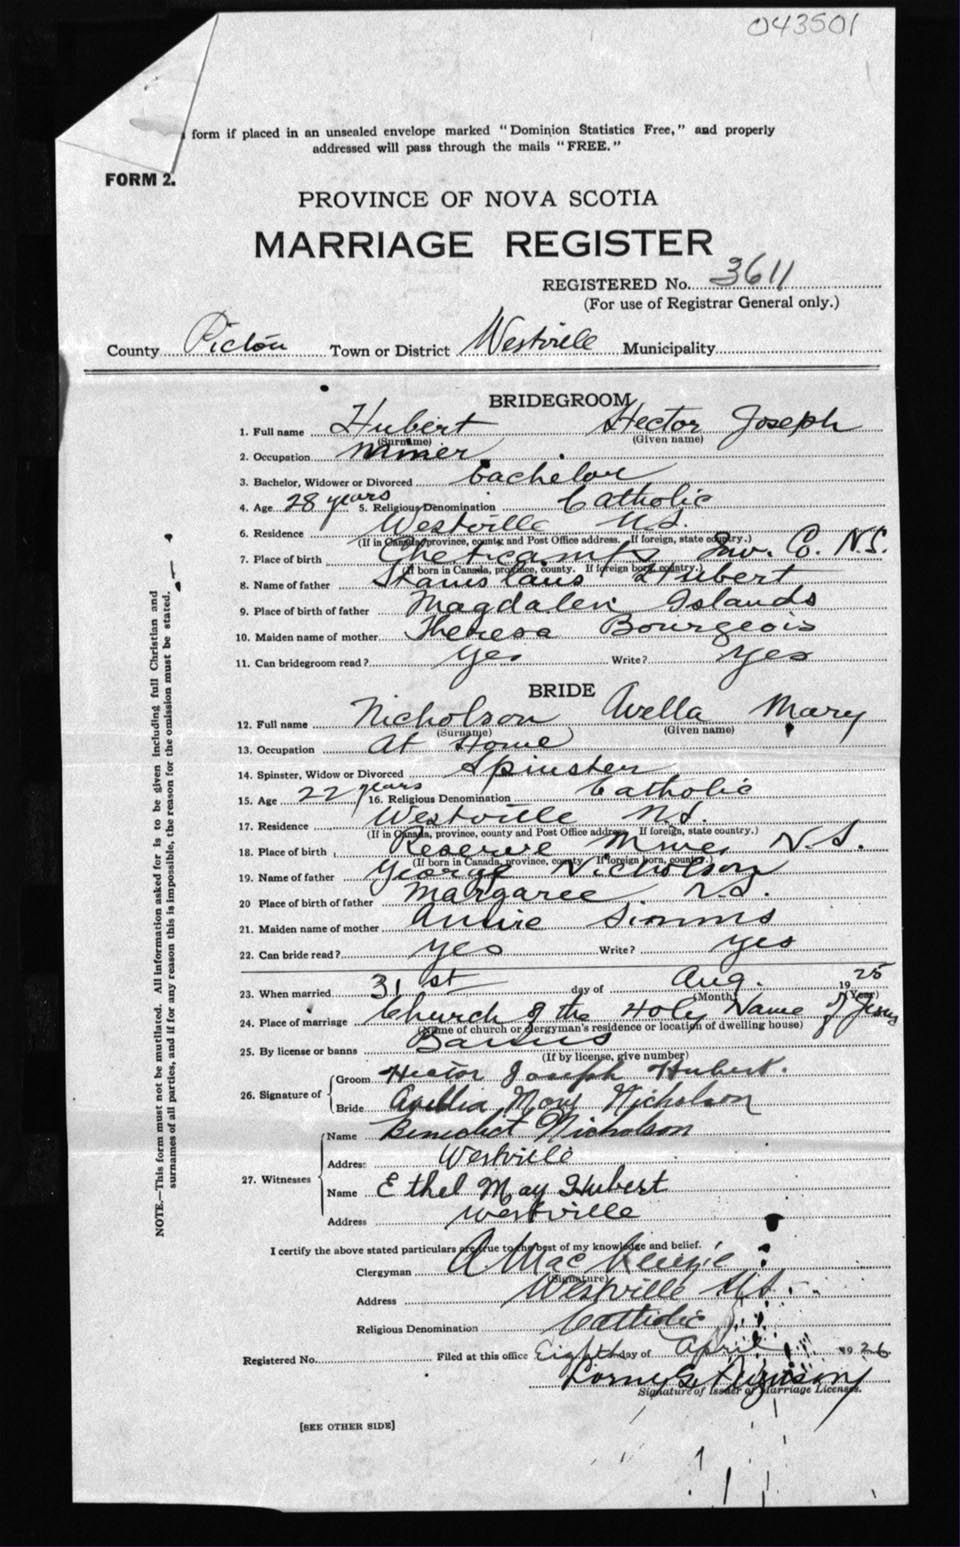 043501
form if placed in an unsealed envelope marked "Dominion Statistics Free," and properly
addressed will pass through the mails "FREE."
FORM 2.
PROVINCE OF NOVA SCOTIA
MARRIAGE REGISTER
REGISTERED No. 3611
(For use of Registrar General only.)
County Pictou Town or District Westville Municipality
BRIDEGROOM
1. Full name Hubert Hector Joseph
(Surname) (Given name)
2. Occupation miner
3. Bachelor, Widower or Divorced bachelor
4. Age 28 years 5. Religious Denomination Catholic
6. Residence Westville N.S.
(If in Canada, province, county and Post Office address. If foreign, state country.)
7. Place of birth Cheticamp Inv. Co. N.S.
(If born in Canada, province, county. If foreign born, country.)
8. Name of father Stanislaus Hubert
9. Place of birth of father Magdalen Islands
10. Maiden name of mother Theresa Bourgeois
11. Can bridegroom read? yes Write? yes
BRIDE
12. Full name Nicholson Avella Mary
(Surname) (Given name)
13. Occupation at Home
14. Spinster, Widow or Divorced Spinster
15. Age 22 years 16. Religious Denomination Catholic
17. Residence Westville N.S.
(If in Canada, province, county and Post Office address, If foreign, state country.)
18. Place of birth Reserve Mines N.S.
(If born in Canada, province, county If foreign born, country.)
19. Name of father George Nicholson
20 Place of birth of father Margaree N.S.
21. Maiden name of mother Annie Simms
22. Can bride read? yes Write? yes
23. When married 31st day of Aug. 1925
(Month) (Year)
24. Place of marriage Church of the Holy Name of Jesus
(Name of church or clergyman's residence or location of dwelling house)
25. By license or banns Banns
(If by license, give number)
26. Signature of Groom Hector Joseph Hubert.
Bride Mary Nicholson
27. Witnesses Name Benedict Nicholson
Address Westville
Name Ethel May Hubert
Address Westville
I certify the above stated particulars are true to the best of my knowledge and belief.
Clergyman A. MacKenzie
(Signature)
Address Westville N.S.
Religious Denomination Catholic
Registered No. Filed at this office Eighth day of April 1926
Signature of Issuer of Marriage Licenses.
[SEE OTHER SIDE]
NOTE.—This form must not be mutilated. All information asked for is to be given including full Christian and
surnames of all parties, and if for any reason this is impossible, the reason for the omission must be stated.